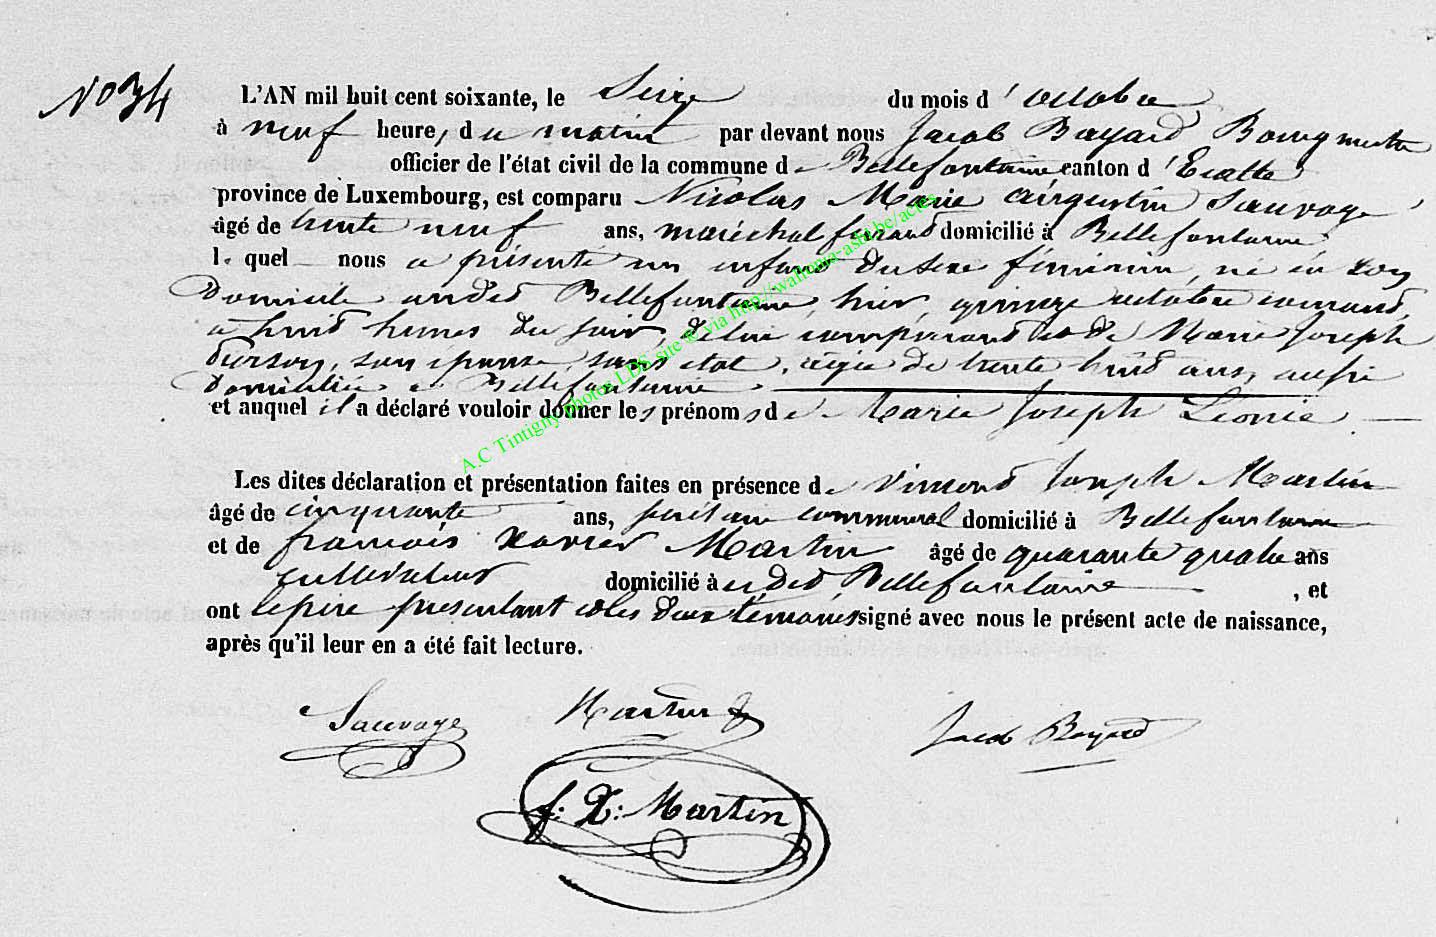 N° 34
L'AN mil huit cent soixante, le Seize du mois d'octobre
à neuf heure, du matin par devant nous Jacob Bayard Bourgmestre
officier de l'état civil de la commune de Bellefontaine canton d'Etalle
province de Luxembourg, est comparu Nicolas Marie Augustin Sauvage
âgé de trente neuf ans, maréchal ferand domicilié à Bellefontaine
le quel nous a présenté un enfant du sexe féminin, né en son
Domicile audit Bellefontaine, hier, quinze octobre courand,
a huit heures du soir, de lui comparand et de Marie Joseph
son épouse, sans état, agée de trente huid ans, aussi
Domiciliée a Bellefontaine
et auquel il a déclaré vouloir donner les prénoms de Marie Joseph Léonie
Les dites déclaration et présentation faites en présence de Joseph Martin
âgé de cinquante ans, communal domicilié à Bellefontaine
et de françois Xavier Martin âgé de quarante quatre ans
cultivateur domicilié à udid Bellefontaine, et
ont le père présentant et les deux témoins signé avec nous le présent acte de naissance,
après qu'il leur en a été fait lecture.
Sauvage Martin Jacob Bayard
f: X: Martin
A.C Tintigny photos LDS site @ via http://wallonia-asbl.be/actes